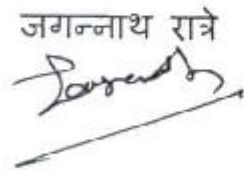 जगन्नाथ रात्रे